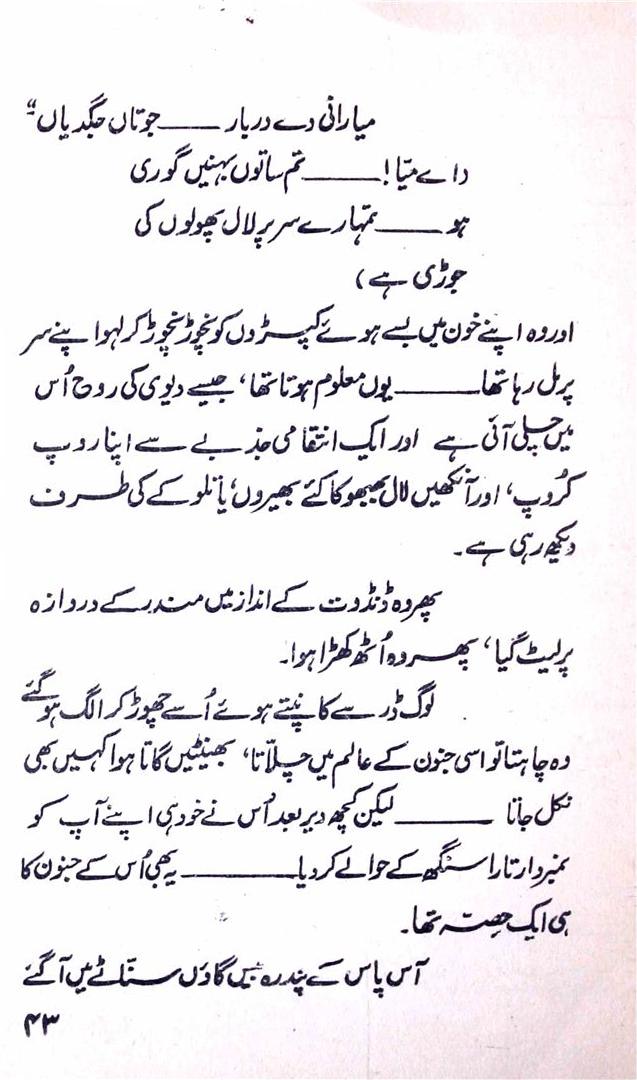 میارانی دے دربار ——— جوتاں جگدیاں"
داے میّا! ——— تم ساتوں بہنیں گوری
ہو ——— تمہارے سر پر لال پھولوں کی
جوڑی ہے)
اور وہ اپنے خون میں بسے ہوئے کپڑوں کو نچوڑ نچوڑ کر لہو اپنے سر
پر مل رہا تھا ——— یوں معلوم ہوتا تھا، جیسے دیوی کی روح اُس
میں چلی آئی ہے اور ایک انتقامی جذبے سے اپنا روپ
کُروپ، اور آنکھیں لال بھبھوکا کئے بھیروں، یا نلوکے کی طرف
دیکھ رہی ہے۔
پھر وہ ڈنڈوت کے انداز میں مندر کے دروازہ
پر لیٹ گیا، پھر وہ اُٹھ کھڑا ہوا۔
لوگ ڈر سے کانپتے ہوئے اُسے چھوڑ کر الگ ہو گئے
وہ چاہتا تو اسی جنون کے عالم میں چلّاتا، بھینٹیں گاتا ہوا کہیں بھی
نکل جاتا ——— لیکن کچھ دیر بعد اُس نے خود ہی اپنے آپ کو
نمبردار تارا سنگھ کے حوالے کر دیا ——— یہ بھی اُس کے جنون کا
ہی ایک حصّہ تھا۔
آس پاس کے پندرہ بیس گاؤں سنّاٹے میں آ گئے
۴۳